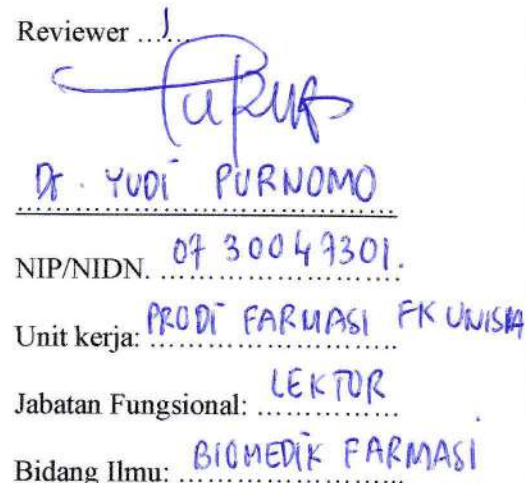 Reviewer ...1...
Dr. YUDI PURNOMO
NIP/NIDN. 0730047301.
Unit kerja: PRODI FARMASI FK UNISMA
Jabatan Fungsional: LEKTOR
Bidang Ilmu: BIOMEDIK FARMASI